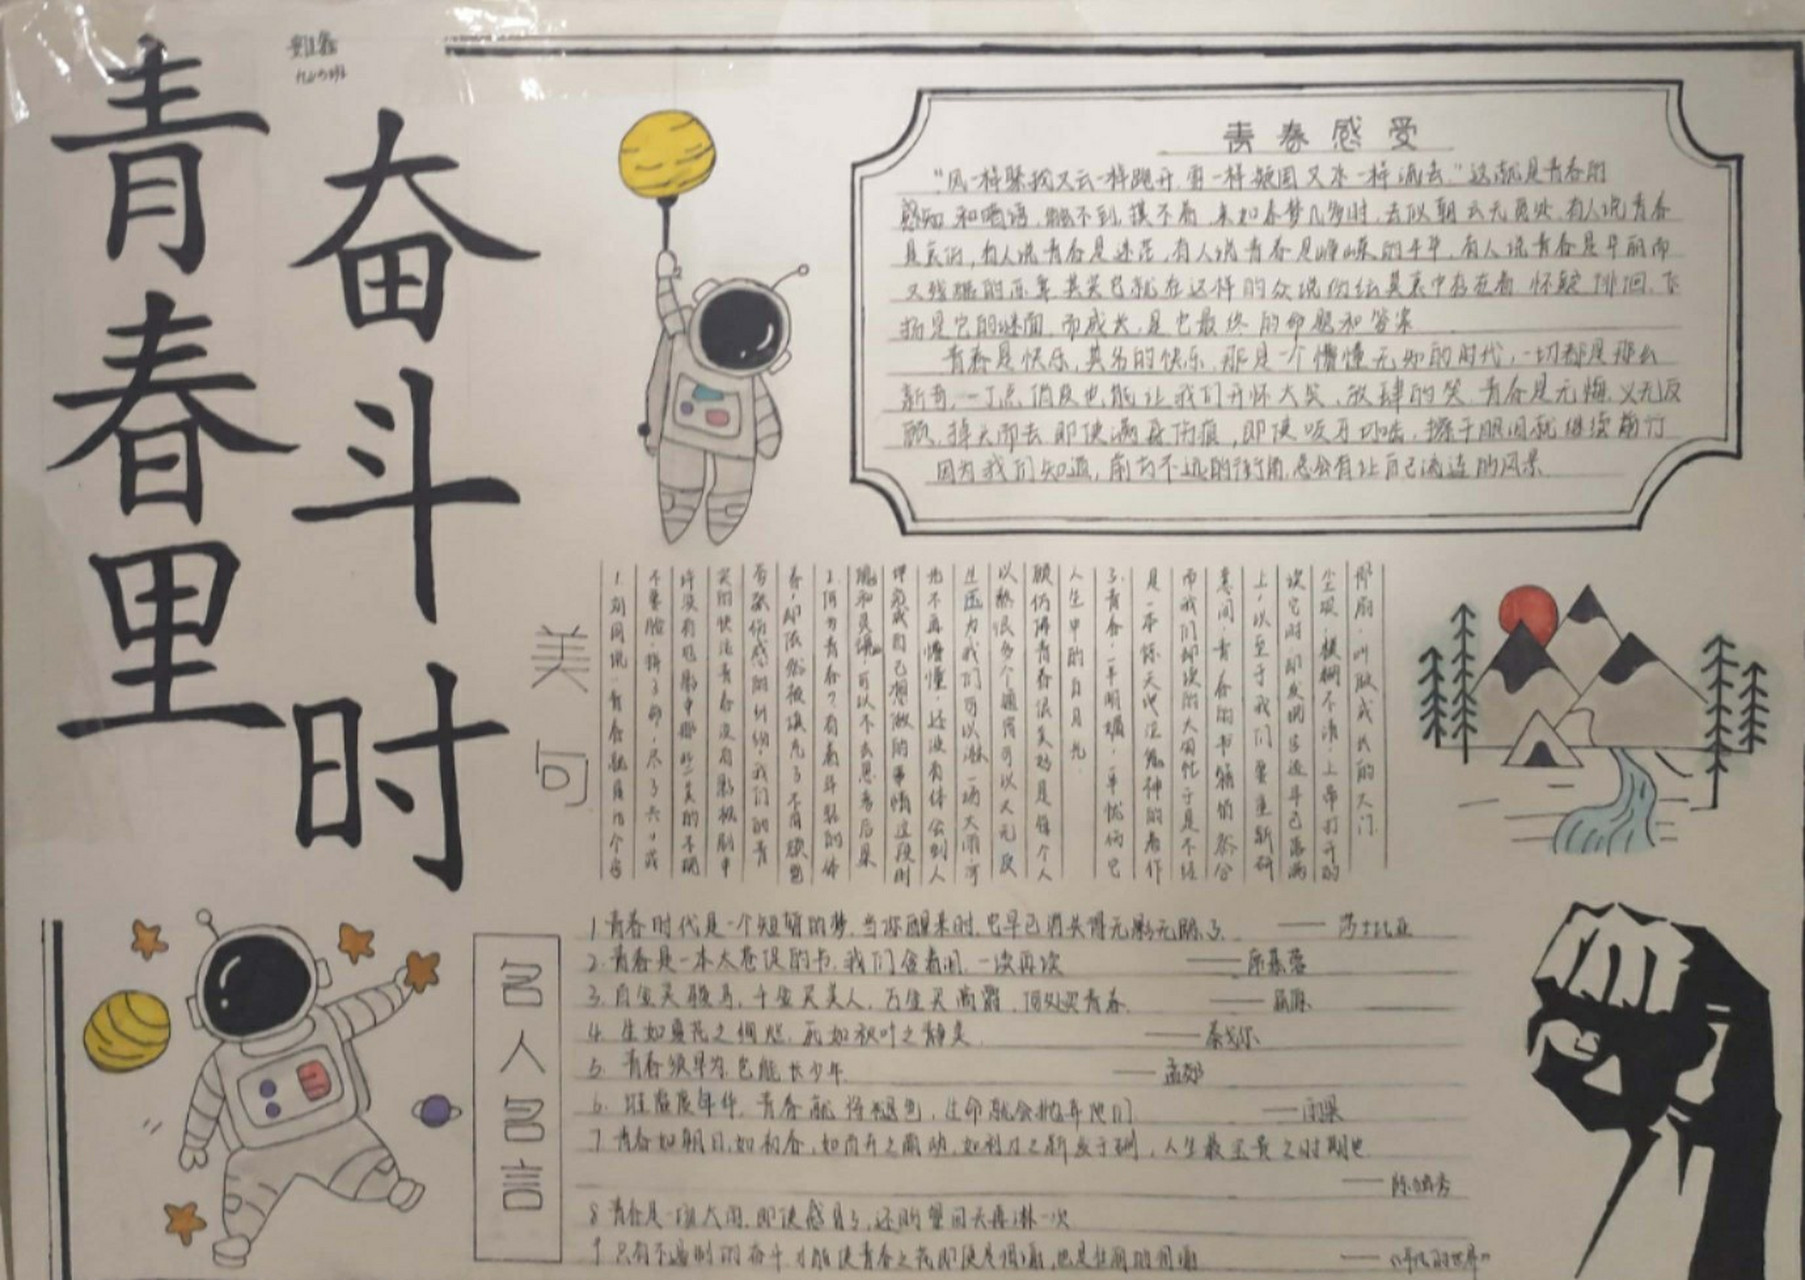 青春里
奋斗时
青春感受
"风一样 又云一样跑开,雪一样凝固又水一样流去。"这就是青春的
感知和 语,触不到,摸不着,来如春梦几多时,去似朝云无觅处,有人说青春
是 ,有人说青春是迷茫,有人说青春是峥嵘的年华,有人说青春是华丽而
又残 的 章,其实它就在这样的众说纷纭莫衷中存在着,怀疑,徘徊,飞
扬是它的谜面,而成长,是它最终的命题和答案
青春是快乐,莫名的快乐,那是一个懵懂无知的时代,一切都是那么
新奇,一丁点俏皮也能让我们开怀大笑,放肆的笑,青春是无悔,义无反
顾,掉头而去,即使满身伤痕,即使咬牙切齿,擦干眼泪就继续前行
因为我们知道,前方不远的街角,总会有让自己流连的风景
美句
那扇,叫做成长的大门
尘埃,模糊不清,上帝打开的
读它时,却发现字迹斗已落满
上,以至于我们要重新研
意间,青春的书籍悄然合
而我们却读的太匆忙于是不经
是一本惊天地泣鬼神的著作
3.青春,一半明媚,一半忧伤它
人生中的日月光
顾仿佛青春很美好是每个人
以熬很多个通宵可以义无反
狂因为我们可以淋一场大雨可
光不再懵懂,还没有体会到人
择意或自己想做的事情这段时
可以不去思考后果
2.何为青春?有着奋斗 的体
春,却依然被填充了不肯 色
有孤伤感的纠纷,我们的青
笑的快活青春没有影视剧中
许没有电影中那些 美的不顾
不要脸,拼了命,尽了兴,或
1.刘同说,青春就是几个字
名人名言
1 青春时代是一个短暂的梦,当你醒来时,它早已消失得无影无踪了. ——莎士比亚
2.青春是一本太仓促的书,我们含着泪,一读再读 ——席慕蓉
3.百金买骏马,千金买美人,万金买高爵,何处买青春. ——屈原
4. 生如夏花之绚烂,死如秋叶之静美. ——泰戈尔
5. 青春须早为,岂能长少年. ——孟郊
6. 谁虚度年华,青春就将褪色,生命就会抛弃他们. ——雨果
7 青春如朝日,如初春,如百卉之萌动,如利刃之新发于硎,人生最宝贵之时期也
——陈独秀
8 青春是一场大雨,即使感冒了,还盼望回头再淋一次
9 只有不遏制的奋斗才能使青春之花即使是凋谢,也是壮丽的凋谢 ——《平凡的世界》